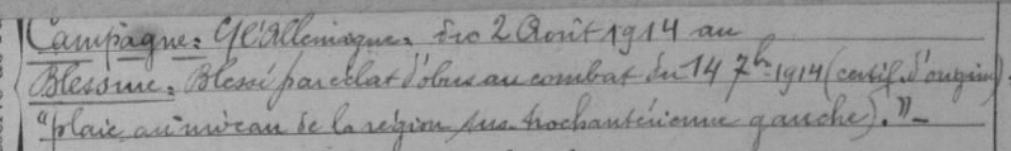 Campagne: Ct l'Allemagne, du 2 Août 1914 au
Blessure: Blessé par éclat d'obus au combat du 14 7bre 1914 (certif. d'origine)
"plaie au niveau de la région sus-trochantérienne gauche)."